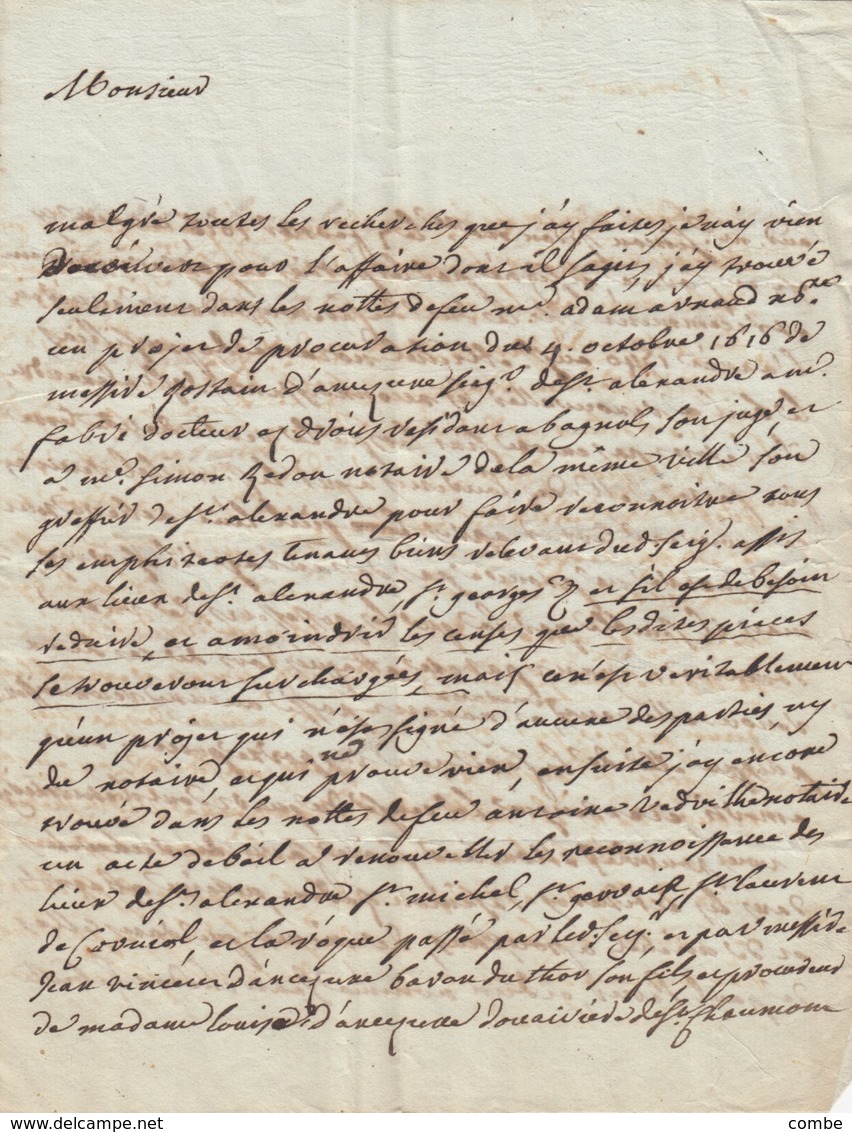 Monsieur
malgré toutes les recherches que j'ay faites je n'ay rien
pour l'affaire dont il sagit, j'ay trouvé
seulement dans les nottes de feu me. adam arnaud nore.
un projet de procuration du 4. octobre 1616 de
messire rostain d'ancezune seigr. de st. alexandre a me.
fabre docteur ez droits residant a bagnols son juge, et
a me. simon redon notaire de la même ville son
greffier de st. alexandre pour faire reconnoitre tous
les emphiteotes tenans biens relevant dud. seigr. assis
aux lieux de st. alexandre, st. georges & et sil est de besoin
reduire, et amoindrir les censes que les dites pieces
se trouveront surchargées, mais ce n'est veritablement
qu'un projet qui n'est signé d'aucune des parties ny
du notaire, et qui ne prouve rien, ensuite j'ay encore
trouvé dans les nottes de feu antoine vedrilhe notaire
un acte de bail a renouveller les reconnoissance des
lieux de st. alexandre st. michel, st. gervaist, st. laurent
de Corniol, et la roque passé par led. seigr. et par messire
Jean vincent d'ancezune baron du thor son fils et procureur
de madame louise d'ancezune douairiere de st. Chaumont
combe